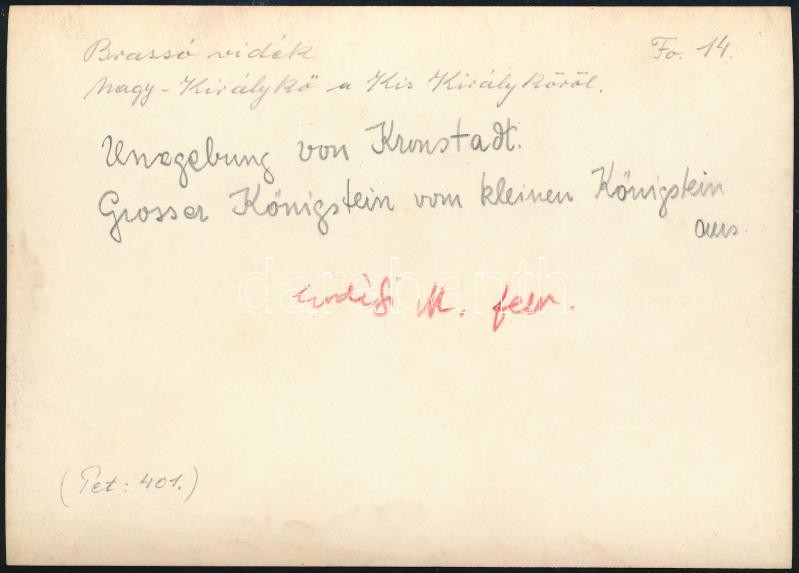 Brassó vidék
Fo. 14.
Nagy-Királykő a Kis Királykőről.
Umgebung von Kronstadt.
Grosser Königstein vom kleinen Königstein
aus
darabanth
M. felv.
(Tet: 401.)